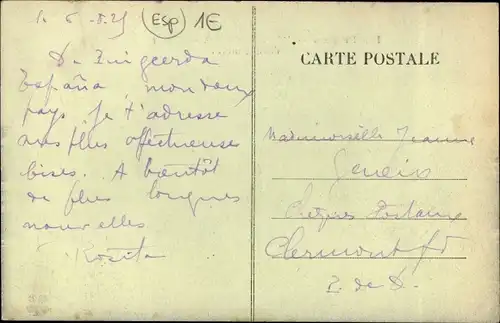 6-8-25 (Esp) 1€
De Puigcerda
España, mon doux
pays je t'adresse
mes plus affectueuses
bises. A bientôt
de plus longues
nouvelles
Rosita
CARTE POSTALE
Mademoiselle Jeanne
Chèques Postaux
Clermont Fd
P. de D.